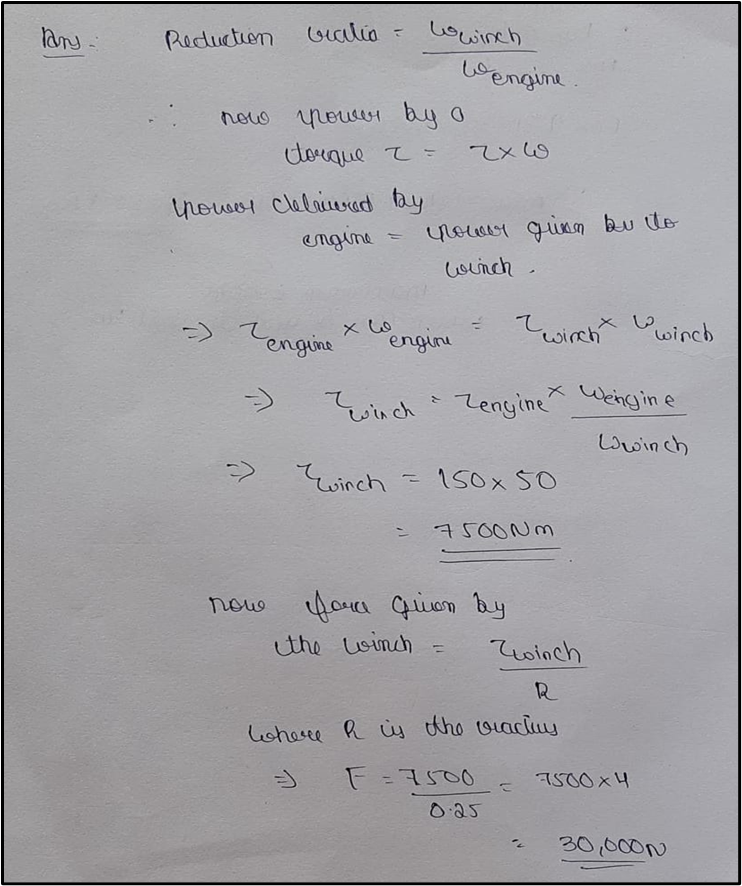 Ans :- Reduction ratio = ω winch / ω engine.
∴ now power by a
torque τ = τ × ω
power delivered by
engine = power given bu to
winch .
⇒ τ engine × ω engine = τ winch × ω winch
⇒ τ winch = τ engine × ω engine / ω winch
⇒ τ winch = 150 × 50
= 7500Nm
now force given by
the winch = τ winch / R
where R is the radius
⇒ F = 7500 / 0.25 = 7500 × 4
= 30,000N